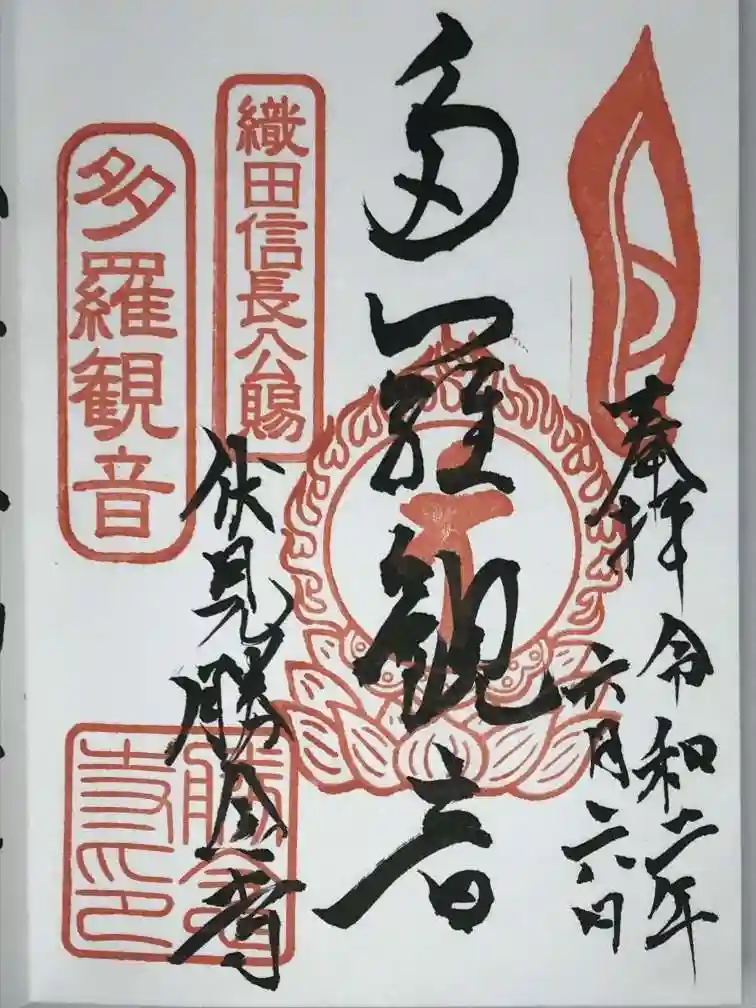 奉拝
令和二年
六月二六日
多羅観音
織田信長公賜
伏見勝念寺
多羅観音
勝念寺印